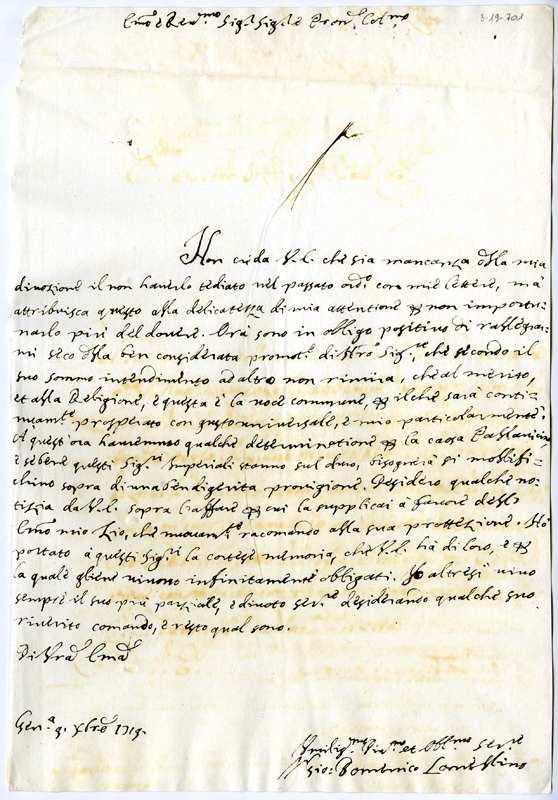 3-19-701
Emo e Revmo Sigr Sigre e Pron Colmo
Non creda V.E. che sia mancanza della mia
divozione il non haverlo tediato nel passato ordo con mie lettere, ma
attribuisca questo alla delicatezza di mia attentione per non importu-
narlo più del dovere. Ora sono in obligo positivo di rallegrar-
mi seco della ben considerata promote di Sigre, che secondo il
suo sommo intendimento ad altro non rimira, che al merito,
et alla Religione, e questa è la voce commune, per il che sarà conti-
nuamte prosperato con gusto universale, e mio particolarmente.
A quest'ora haveremmo qualche determinatione per la causa Pallavicina
e sebene questi Sigri Imperiali stanno sul duro, bisognerà si mollifi-
chino sopra di una ben digerita provigione. Desidero qualche no-
titia da V.E. sopra l'affare per cui la supplicai à favore dello
Emo mio Zio, che nuovamte racomando alla sua protettione. Hò
portato à questi Sigri la cortese memoria, che V.E. hà di loro, e per
la quale gliene vivono infinitamente obligati. Io altresì vivo
sempre il suo più partiale, e divoto serre desiderando qualche suo
riverito comando, e resto qual sono.
Di Vra Ema
Gena 9. Xbre 1719.
Umiligmo Divmo et Obblmo Serre
Gio: Domenico Lomellino